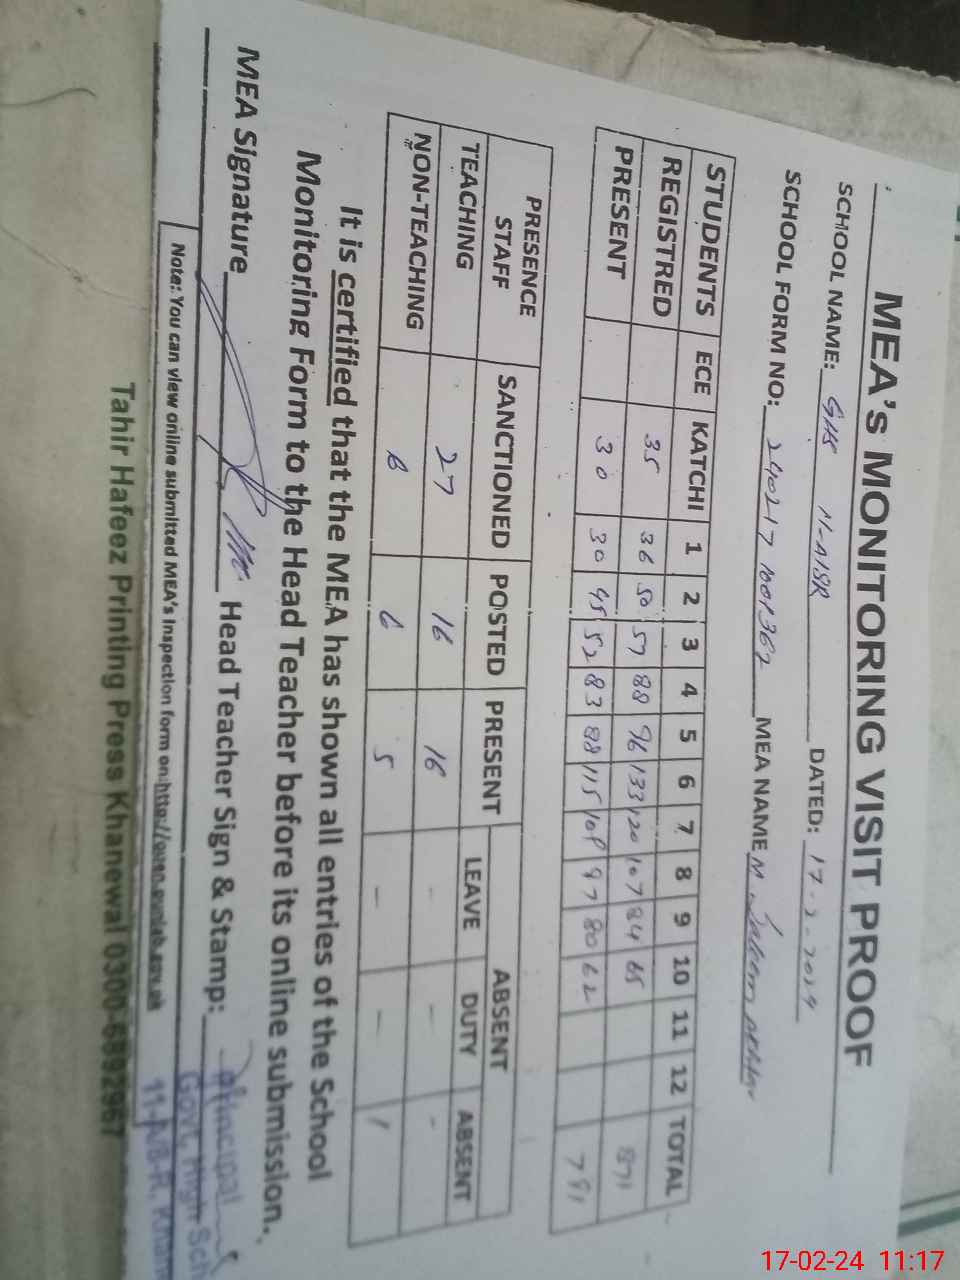 MEA'S MONITORING VISIT PROOF
SCHOOL NAME: GHS 11-A/8R DATED: 17-2-2024
SCHOOL FORM NO: MEA NAME M.
STUDENTS ECE KATCHI 1 2 3 4 5 6 7 8 9 10 11 12 TOTAL
REGISTRED 35 36 50 57 88 96 133 120 107 84 65 871
PRESENT 30 30 45 52 83 88 115 108 97 80 62 781
PRESENCE STAFF SANCTIONED POSTED PRESENT ABSENT
LEAVE DUTY ABSENT
TEACHING 27 16 16 - - -
NON-TEACHING 6 6 5 - - 1
It is certified that the MEA has shown all entries of the School
Monitoring Form to the Head Teacher before its online submission.
MEA Signature Head Teacher Sign & Stamp:
Principal
Govt. High Sch
Note: You can view online submitted MEA's Inspection form on:
Tahir Hafeez Printing Press Khanewal 0300-6892967
17-02-24 11:17